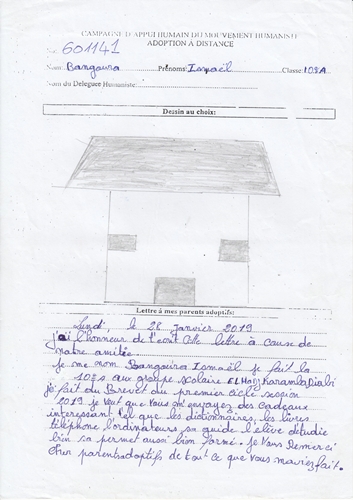 CAMPAGNE D'APPUI HUMAIN DU MOUVEMENT HUMANISTE
ADOPTION À DISTANCE
No: 601141
Nom: Bangoura Prénoms: Ismaël Classe: 10è A
Nom du Délégué Humaniste:
Dessin au choix:
Lettre à mes parents adoptifs:
Lundi, le 28 Janvier 2019
j'ai l'honneur de t'ecrit cette lettre à cause de
notre amitiée
Je me nom Bangoura Ismaël je fait la
10è au groupe scolaire ELHadj Karamba Diabi
je fait du Brevet du premier cicle session
2019 je veut que vous m'envoyez des cadeaux
interessant, tel que les dictionnaires, les livres
téléphone l'ordinateurs sa guide l'élève d'étudie
bien sa permet aussi bien formé. je Vous Remerci
cher parents adoptifs de tout ce que vous m'aviez fait.